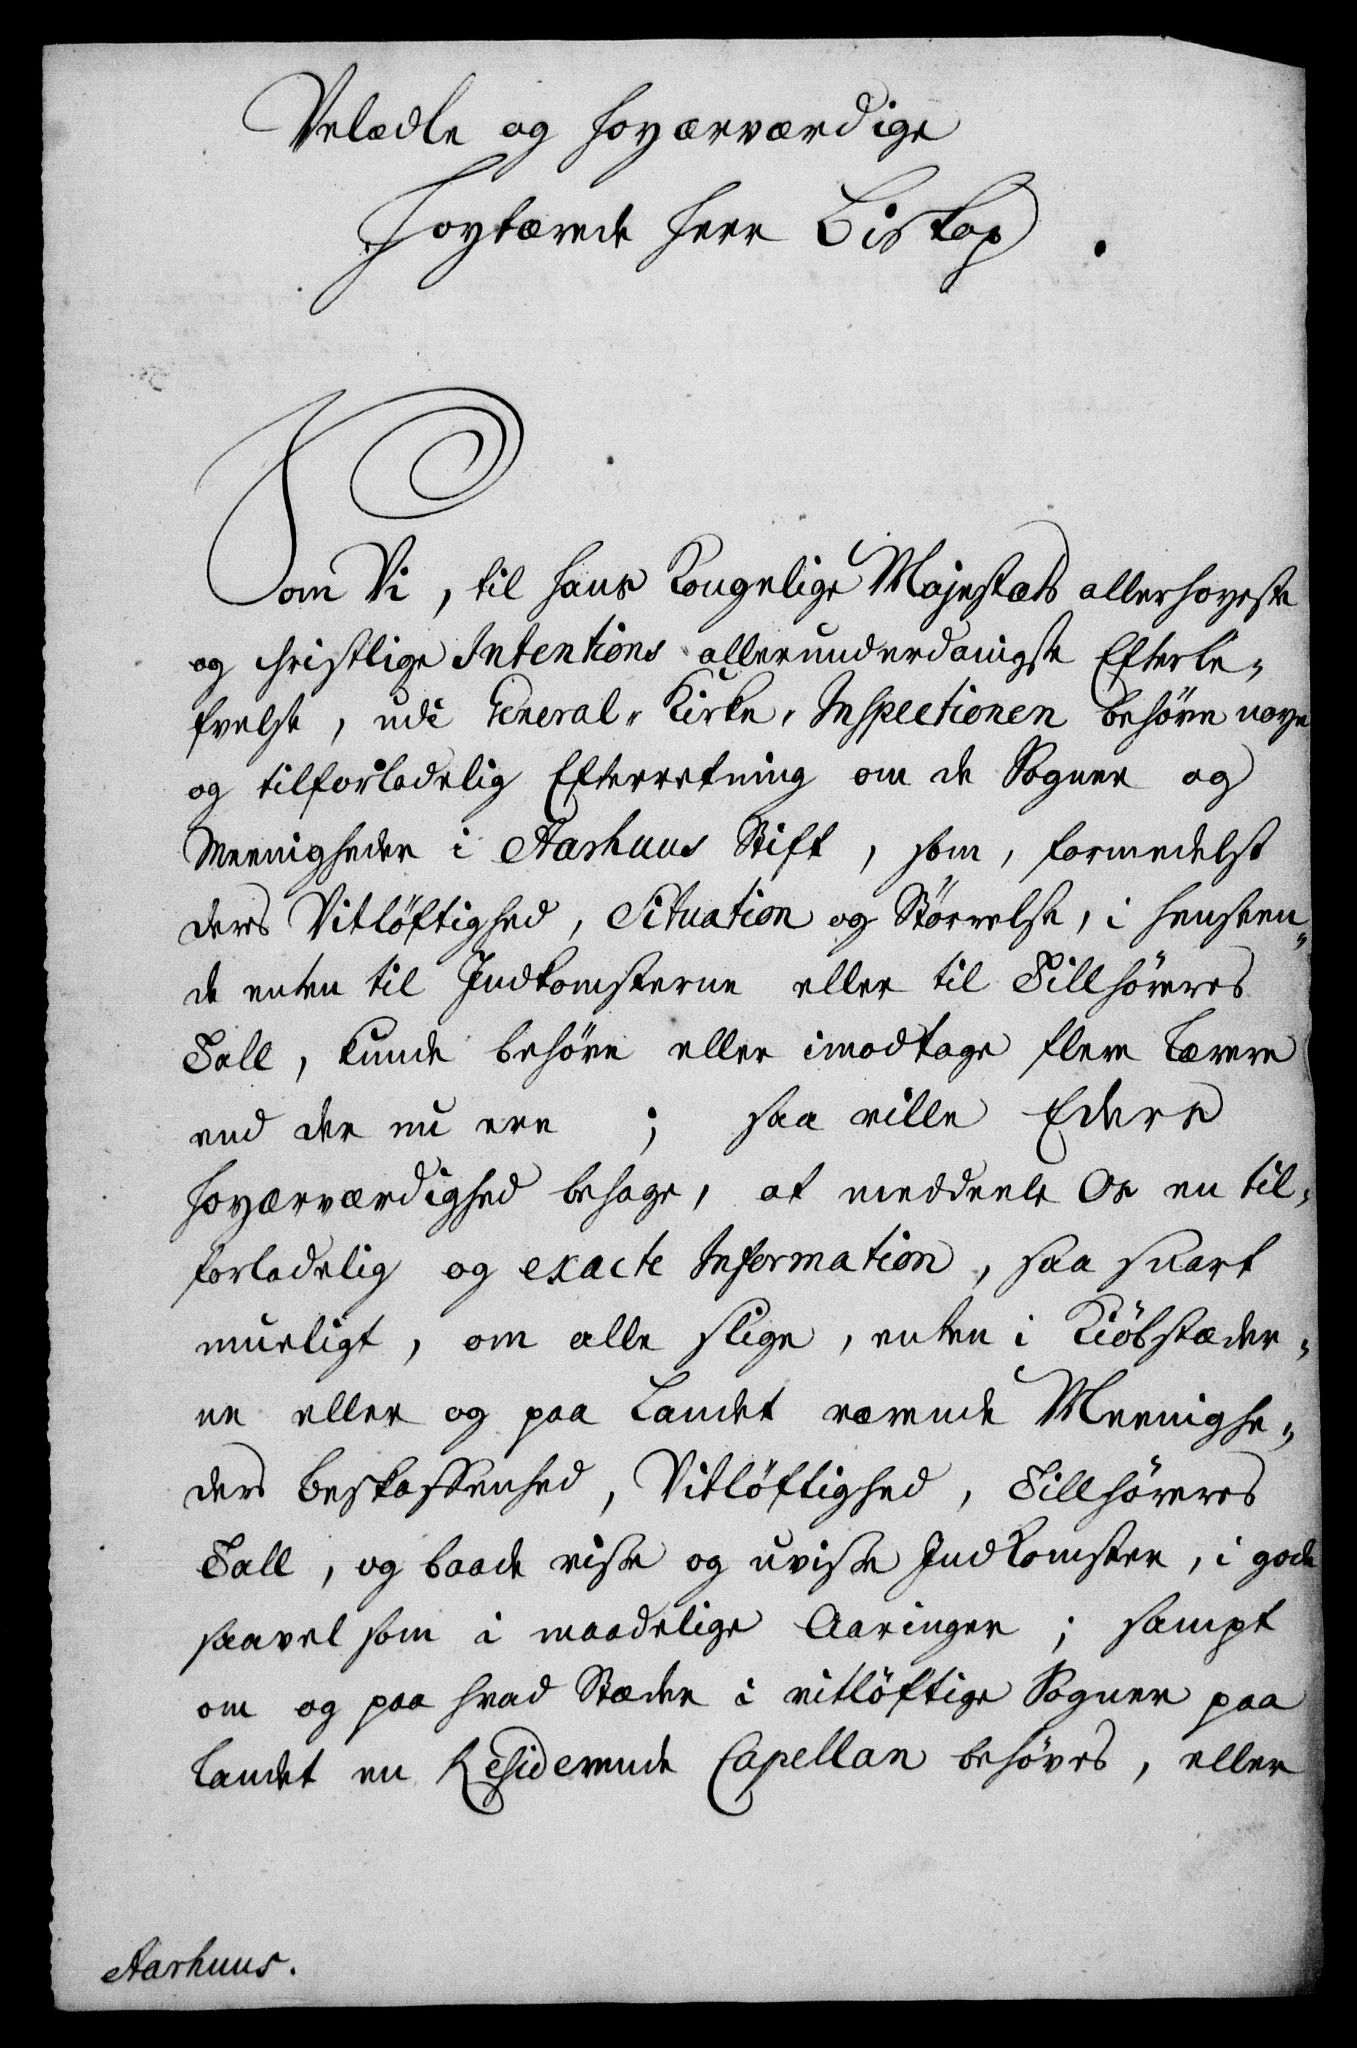 Velædle og Høyærværdige
Høytærede Herr Biskop.
Som Vi, til Hans Kongelige Majestæts allerhøyeste
og christlige Intentions allerunderdanigste Efterle-
fvelse, udi General-Kirke-Inspectionen behöve nøye
og tilforladelig Efterretning om de Sogner og
Meenigheder i Aarhuus Stift, som, formedelst
deres Vitlöftighed, Situation og Störrelse, i henseen-
de enten til Indkomsterne eller til Tillhöreres
Tall, kunde behöve eller imodtage flere Lærere
end der nu ere; saa ville Eders
Høyærværdighed behage, at meddeele Os en til-
forladelig og exacte Information, saa snart
mueligt, om alle slige, enten i Kiöbstæder-
ne eller og paa Landet værende Meenighe-
ders Beskaffenhed, Vitlöftighed, Tillhöreres
Tall, og baade visse og uvisse Indkomster, i gode
saavel som i maadelige Aaringer; sampt
om og paa hvad Stæder i vitlöftige Sogner paa
Landet en Residerende Capellan behöves, eller
Aarhuus.